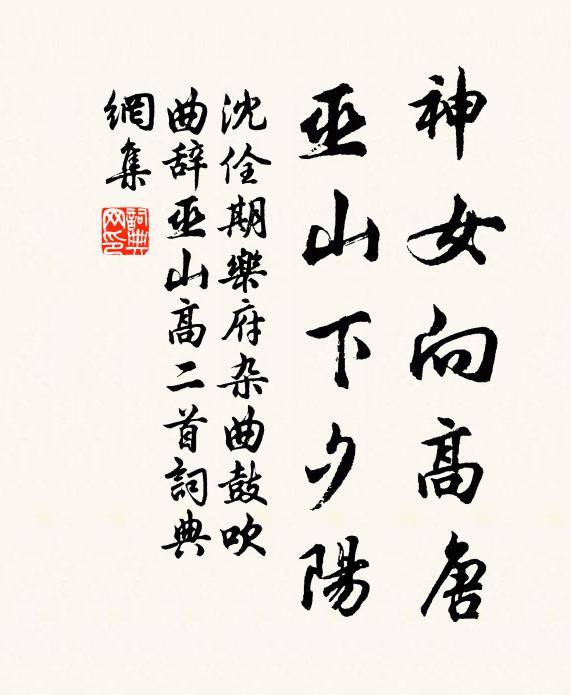 神女向高唐
巫山下夕陽
沈佺期樂府杂曲鼓吹
曲辞巫山高二首詞典
網集
詞典
网印